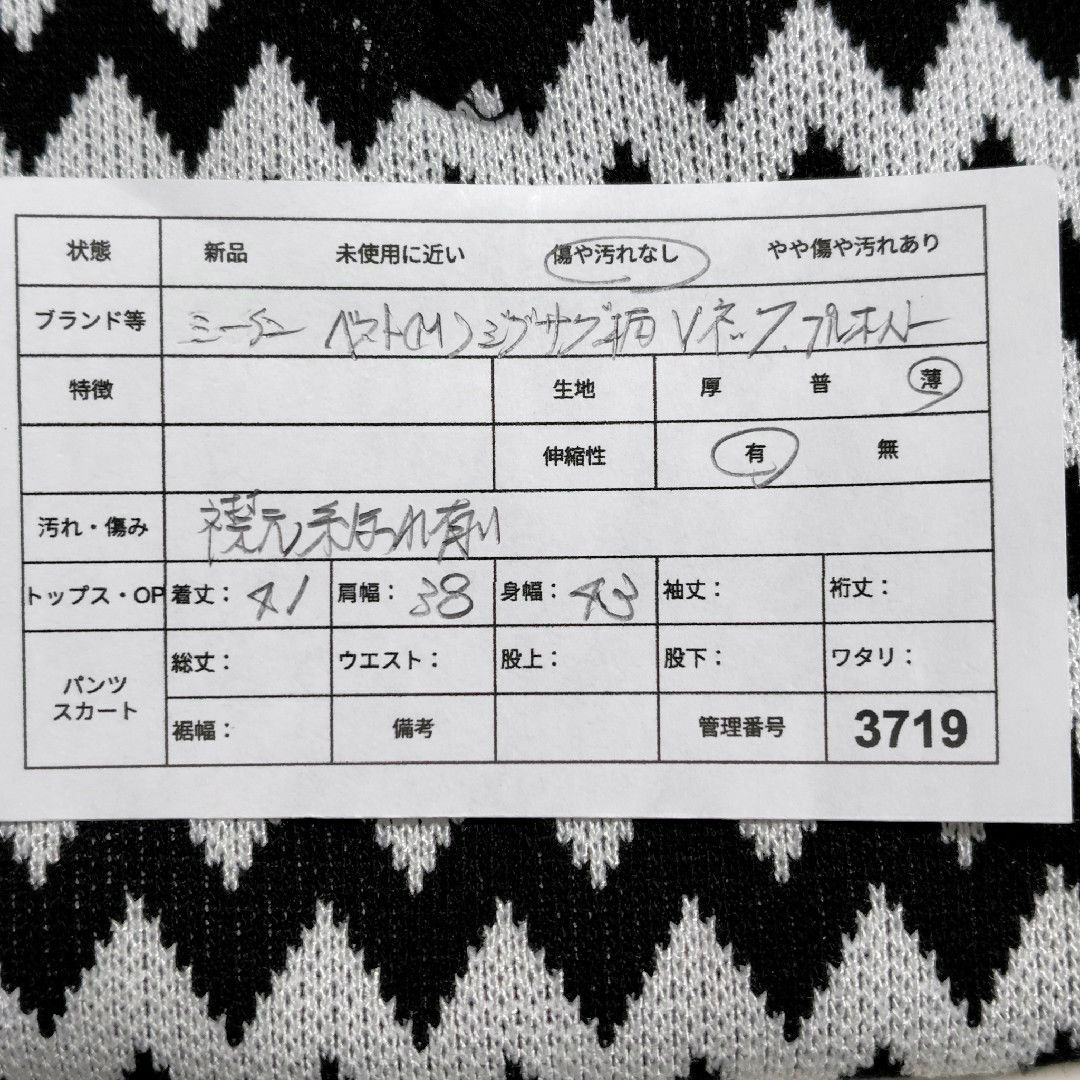 状態 新品 未使用に近い 傷や汚れなし やや傷や汚れあり
ブランド等 ベスト(M)ジグザグ柄 Vネック
特徴 生地 厚 普 薄
伸縮性 有 無
汚れ・傷み 襟元糸ほつれ有り
トップス・OP 着丈: 41 肩幅: 38 身幅: 43 袖丈: 裄丈:
パンツ スカート 総丈: ウエスト: 股上: 股下: ワタリ:
裾幅: 備考 管理番号 3719